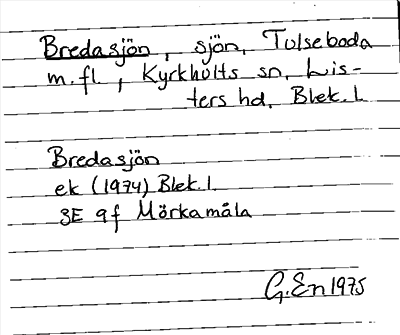 Bredasjön, sjön, Tulseboda
m. fl., Kyrkhults sn, Lis-
ters hd, Blek. l.
Bredasjön
ek (1974) Blek. l.
3E 9f Mörkamåla
G. En 1975